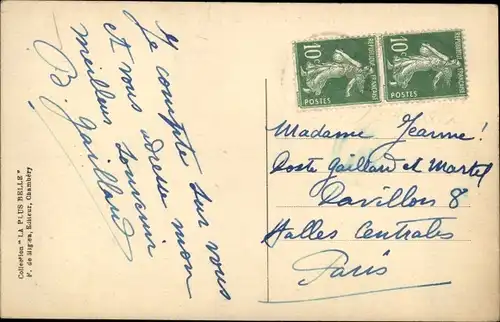 Je compte sur vous
et vous adresse mon
meilleur souvenir
B. Gaillard
Collection "LA PLUS BELLE"
F. de Bigan, Editeur, Chambéry
10c
REPUBLIQUE FRANÇAISE
POSTES
10c
REPUBLIQUE FRANÇAISE
POSTES
Madame Jeanne!
Poste Gaillard et Martel
Pavillon 8
Halles Centrales
Paris